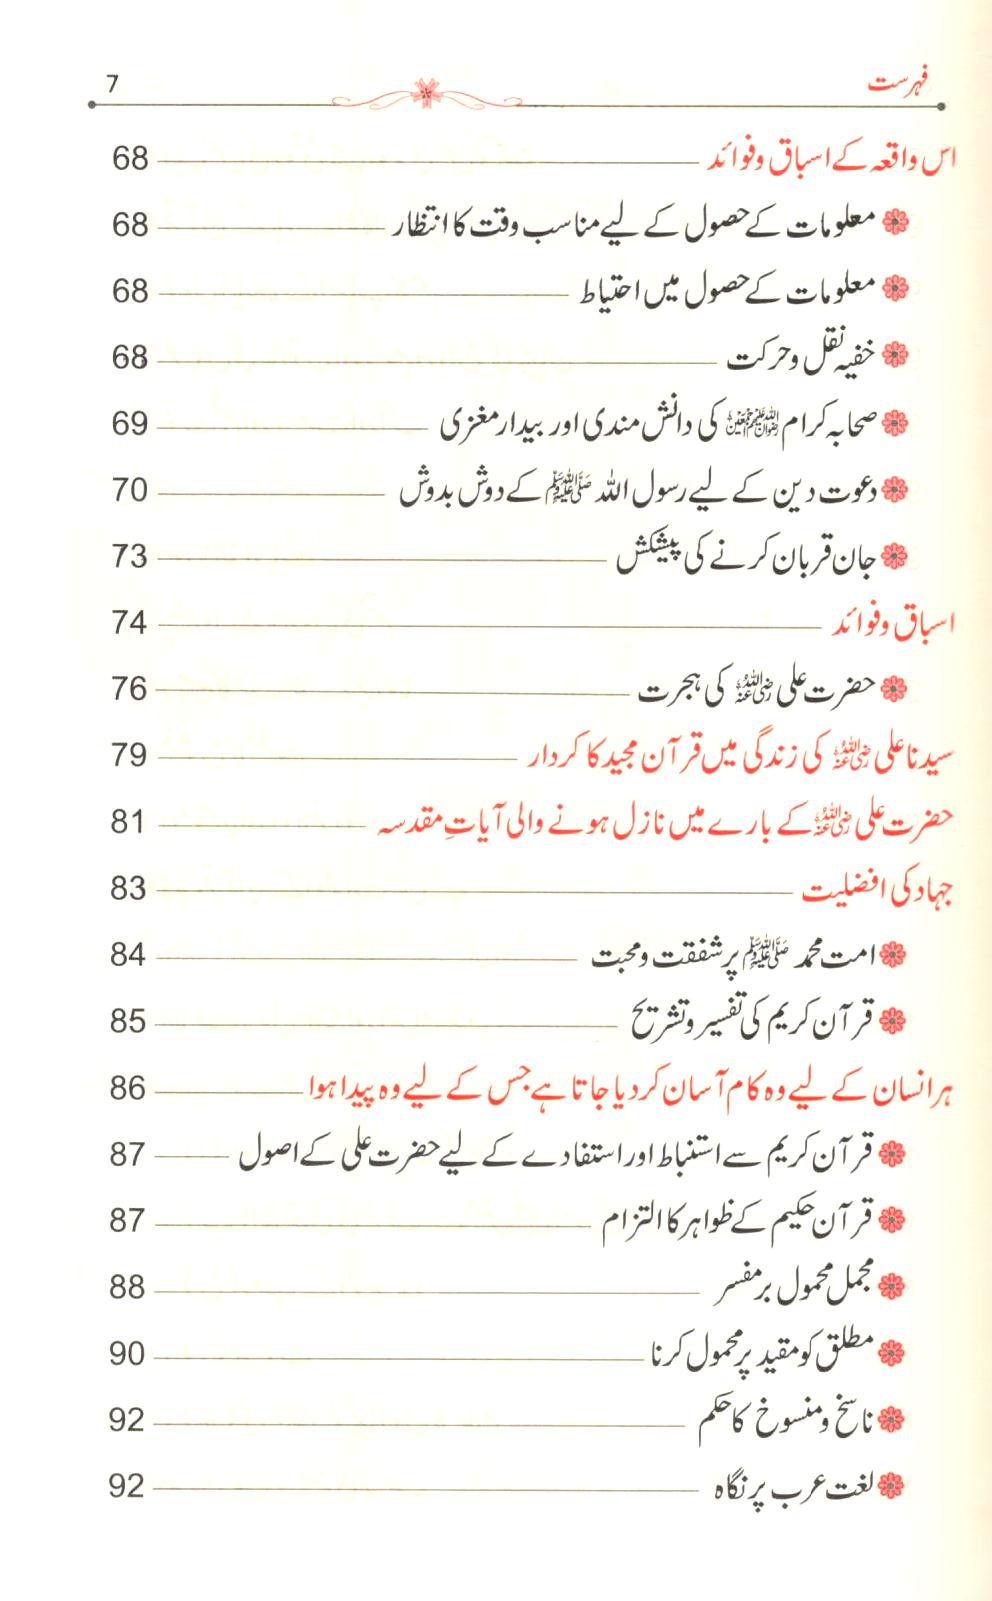 فہرست 7
اس واقعہ کے اسباق و فوائد 68
معلومات کے حصول کے لیے مناسب وقت کا انتظار 68
معلومات کے حصول میں احتیاط 68
خفیہ نقل و حرکت 68
صحابہ کرام رضوان اللہ علیہم اجمعین کی دانش مندی اور بیدار مغزی 69
دعوت دین کے لیے رسول اللہ ﷺ کے دوش بدوش 70
جان قربان کرنے کی پیشکش 73
اسباق و فوائد 74
حضرت علی رضی اللہ عنہ کی ہجرت 76
سیدنا علی رضی اللہ عنہ کی زندگی میں قرآن مجید کا کردار 79
حضرت علی رضی اللہ عنہ کے بارے میں نازل ہونے والی آیاتِ مقدسہ 81
جہاد کی افضلیت 83
امت محمد ﷺ پر شفقت و محبت 84
قرآن کریم کی تفسیر و تشریح 85
ہر انسان کے لیے وہ کام آسان کر دیا جاتا ہے جس کے لیے وہ پیدا ہوا 86
قرآن کریم سے استنباط اور استفادے کے لیے حضرت علی کے اصول 87
قرآن حکیم کے ظواہر کا التزام 87
مجمل محمول بر مفسر 88
مطلق کو مقید پر محمول کرنا 90
ناسخ و منسوخ کا حکم 92
لغت عرب پر نگاہ 92